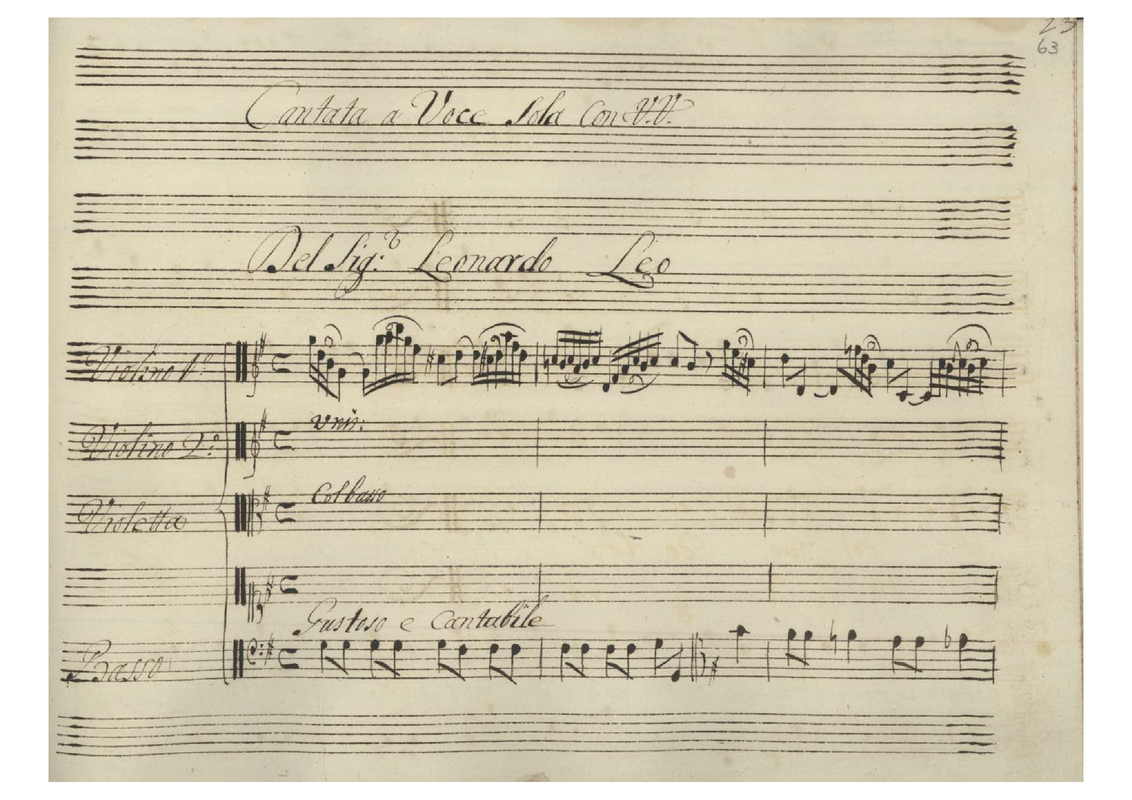 23
63
Cantata a Voce Sola Con V.V.
Del Sig:r Leonardo Leo
Violino 1o
Violino 2o:
Unis:
Violetta
Col basso
Gustoso e Cantabile
Basso